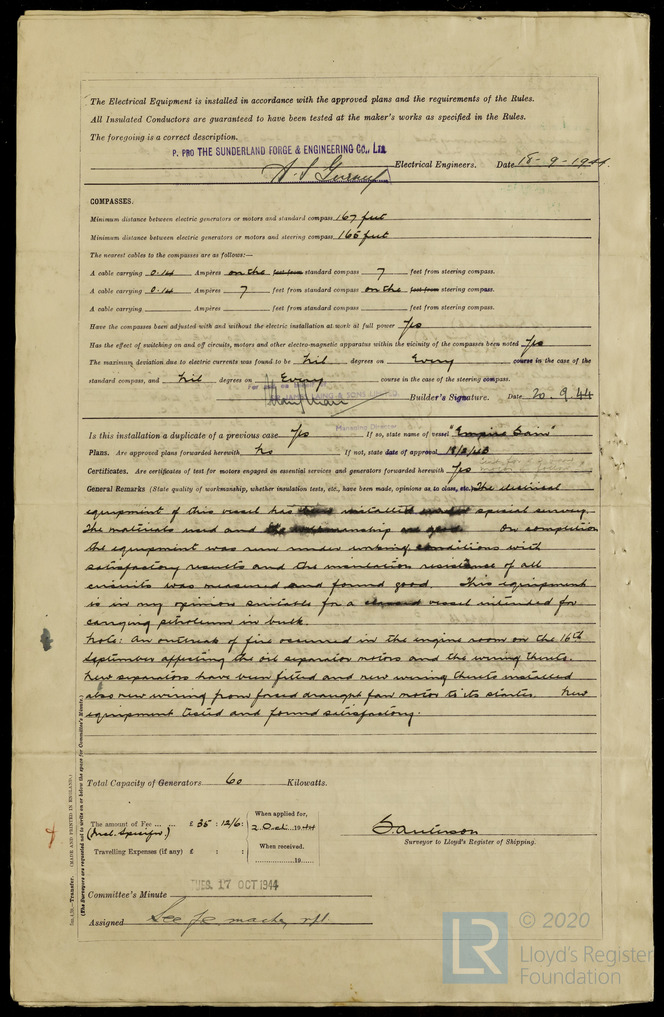 The Electrical Equipment is installed in accordance with the approved plans and the requirements of the Rules.
All Insulated Conductors are guaranteed to have been tested at the maker's works as specified in the Rules.
The foregoing is a correct description.
P. PRO THE SUNDERLAND FORGE & ENGINEERING CO., LTD.
Electrical Engineers. Date 18-9-1944.
COMPASSES.
Minimum distance between electric generators or motors and standard compass 167 feet
Minimum distance between electric generators or motors and steering compass 165 feet
The nearest cables to the compasses are as follows:—
A cable carrying 0.14 Ampères on the feet from standard compass 7 feet from steering compass.
A cable carrying 0.14 Ampères 7 feet from standard compass on the feet from steering compass.
A cable carrying Ampères feet from standard compass feet from steering compass.
Have the compasses been adjusted with and without the electric installation at work at full power Yes
Has the effect of switching on and off circuits, motors and other electro-magnetic apparatus within the vicinity of the compasses been noted Yes
The maximum deviation due to electric currents was found to be Nil degrees on Every course in the case of the
standard compass, and Nil degrees on Every course in the case of the steering compass.
Builder's Signature. Date 20.9.44
Managing Director
Is this installation a duplicate of a previous case Yes If so, state name of vessel "Empire Gain"
Plans. Are approved plans forwarded herewith No If not, state date of approval 18/2/43
Certificates. Are certificates of test for motors engaged on essential services and generators forwarded herewith Yes
General Remarks (State quality of workmanship, whether insulation tests, etc., have been made, opinions as to class, etc.) The electrical
equipment of this vessel has been installed under special survey.
The materials used and the workmanship are good. On completion
the equipment was run under working conditions with
satisfactory results and the insulation resistance of all
circuits was measured and found good. This equipment
is in my opinion suitable for a classed vessel intended for
carrying petroleum in bulk.
Note: An outbreak of fire occurred in the engine room on the 16th
September affecting the oil separator motors and the wiring thereto.
New separators have been fitted and new wiring thereto installed
also new wiring from forced draught fan motor to its starter. New
equipment tested and found satisfactory.
Total Capacity of Generators 60 Kilowatts.
The amount of Fee ... ... £ 35 : 12/6 :
When applied for,
2 Oct. 1944
Travelling Expenses (if any) £ : :
When received.
19
Surveyor to Lloyd's Register of Shipping.
Committee's Minute TUES. 17 OCT 1944
Assigned See
Transfer. (MADE AND PRINTED IN ENGLAND.)
(The Surveyors are requested not to write on or below the space for Committee's Minute.)
LR © 2020
Lloyd's Register
Foundation